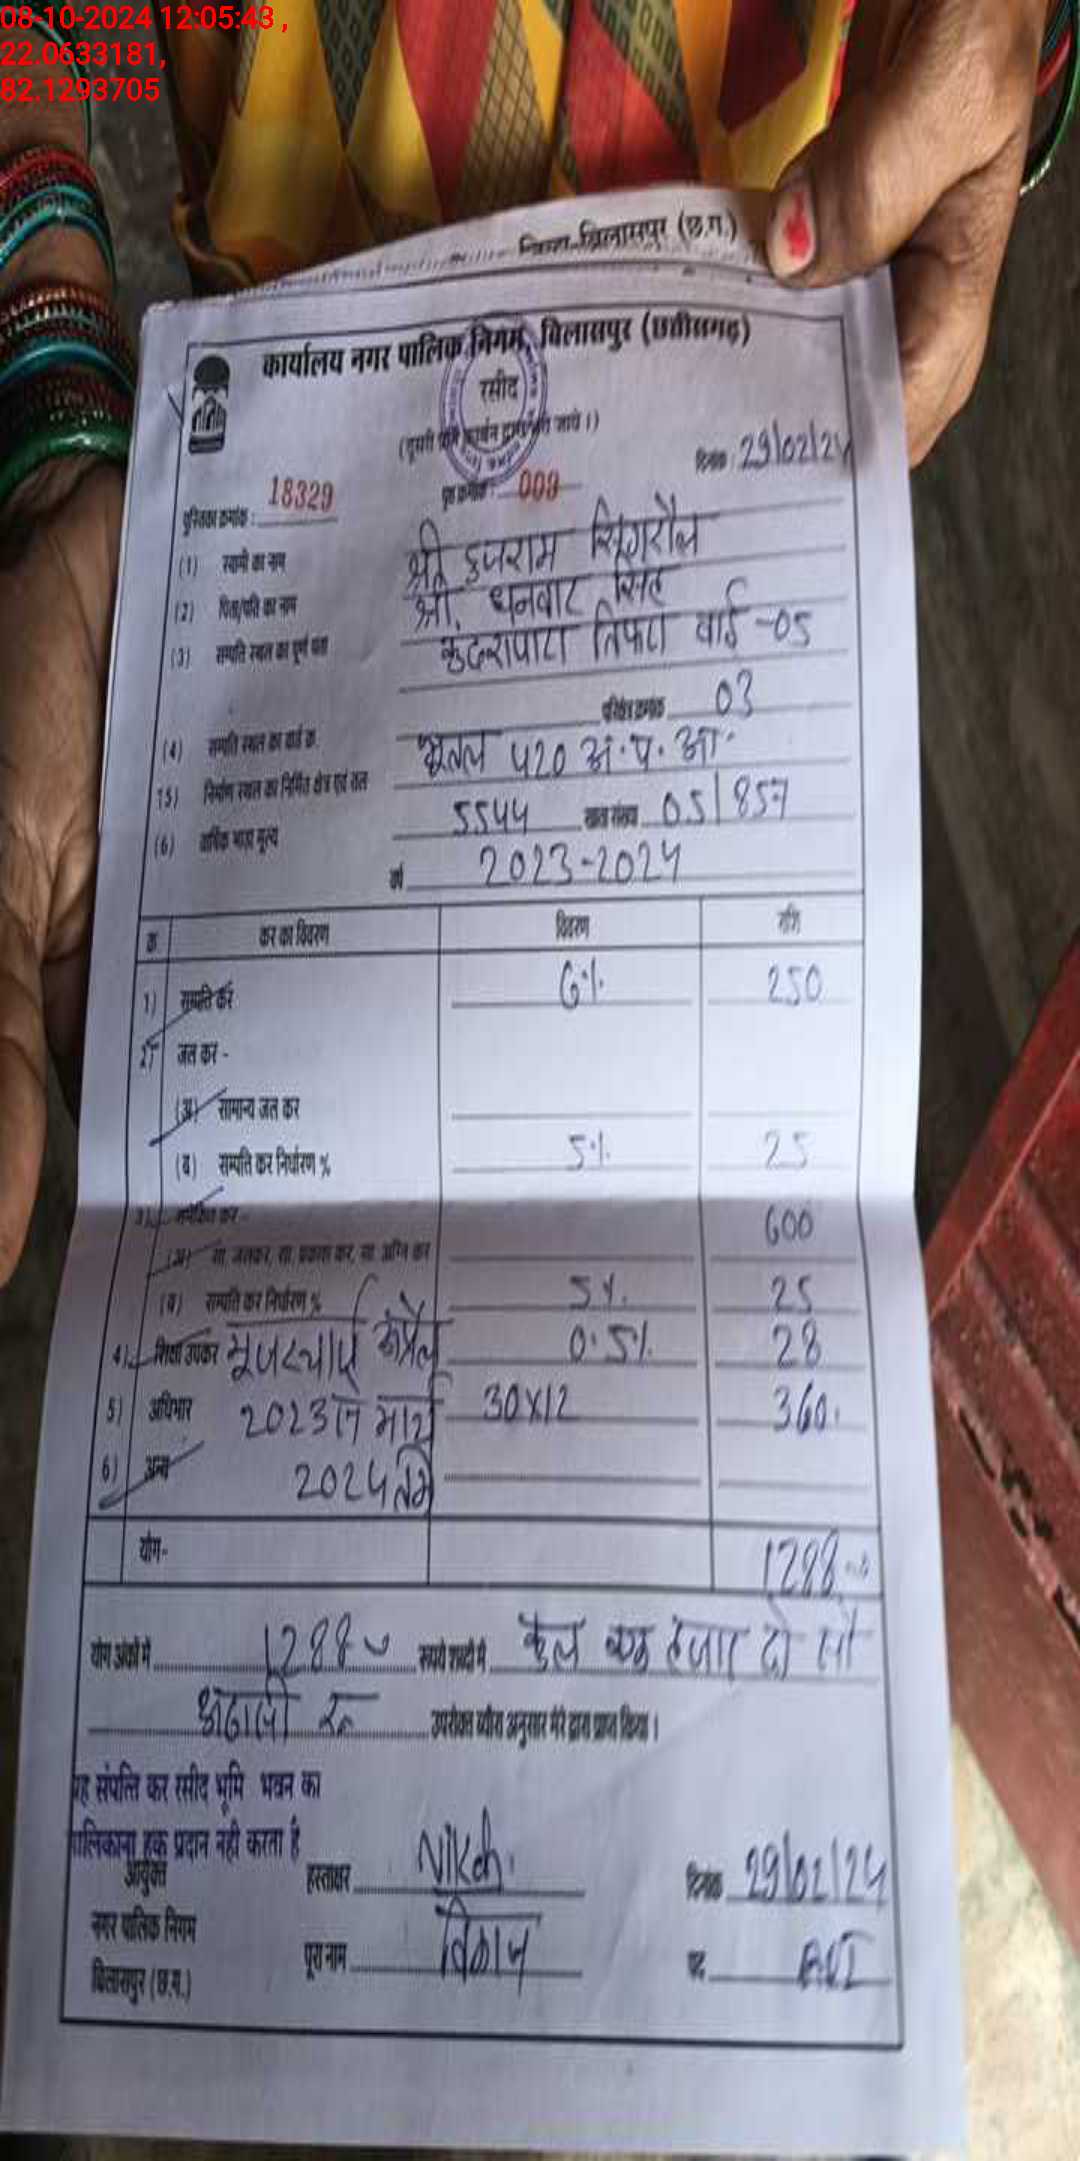 08-10-2024 12:05:43 ,
22.0633181,
82.1293705
जिला-बिलासपुर (छ.ग.)
कार्यालय नगर पालिक निगम, बिलासपुर (छत्तीसगढ़)
रसीद
(दूसरी प्रति कार्बन द्वारा भरी जावे।)
दिनांक 29/02/24
पुस्तिका क्रमांक : 18329 पृष्ठ क्रमांक : 009
(1) स्वामी का नाम श्री
(2) पिता/पति का नाम श्री. धनवार सिंह
(3) सम्पति स्थल का पूर्ण पता तिफरा वार्ड -05
परिक्षेत्र क्रमांक 03
(4) सम्पति स्थल का वार्ड क्र. भूतल 420 अ.प.आ.
(5) निर्माण स्थल का निर्मित क्षेत्र एवं तल
(6) वार्षिक भाड़ा मूल्य 5544 खाता संख्या 05/857
वर्ष 2023-2024
क्र कर का विवरण विवरण राशि
1) सम्पति कर 6% 250
2) जल कर -
(अ) सामान्य जल कर
(ब) सम्पति कर निर्धारण % 5% 25
3) समेकित कर - 600
(अ) सा. जलकर, सा. प्रकाश कर, सा. अग्नि कर
(ब) सम्पति कर निर्धारण % 5% 25
4) शिक्षा उपकर 0.5% 28
5) अधिभार 2023 से मार्च 30X12 360
6) अन्य 2024 तक
योग- 1288
योग अंकों में 1288 रूपये शब्दों में कुल एक हजार दो सौ
अठासी रू उपरोक्त ब्यौरा अनुसार मेरे द्वारा प्राप्त किया।
यह संपत्ति कर रसीद भूमि भवन का
मालिकाना हक प्रदान नही करता है
आयुक्त हस्ताक्षर दिनांक 29/02/24
नगर पालिक निगम
पूरा नाम विकास पद
बिलासपुर (छ.ग.)